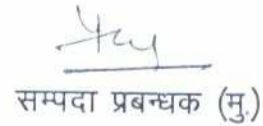 सम्पदा प्रबन्धक (मु.)